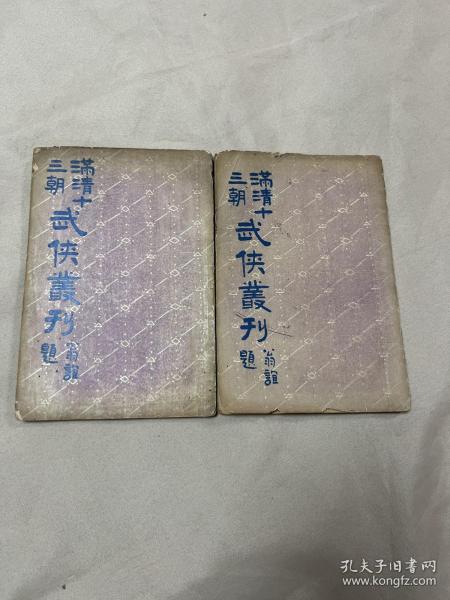 滿清十
三朝
武俠叢刊
翁誼
題
滿清十
三朝
武俠叢刊
翁誼
題
孔夫子旧书网
www.kongfz.com